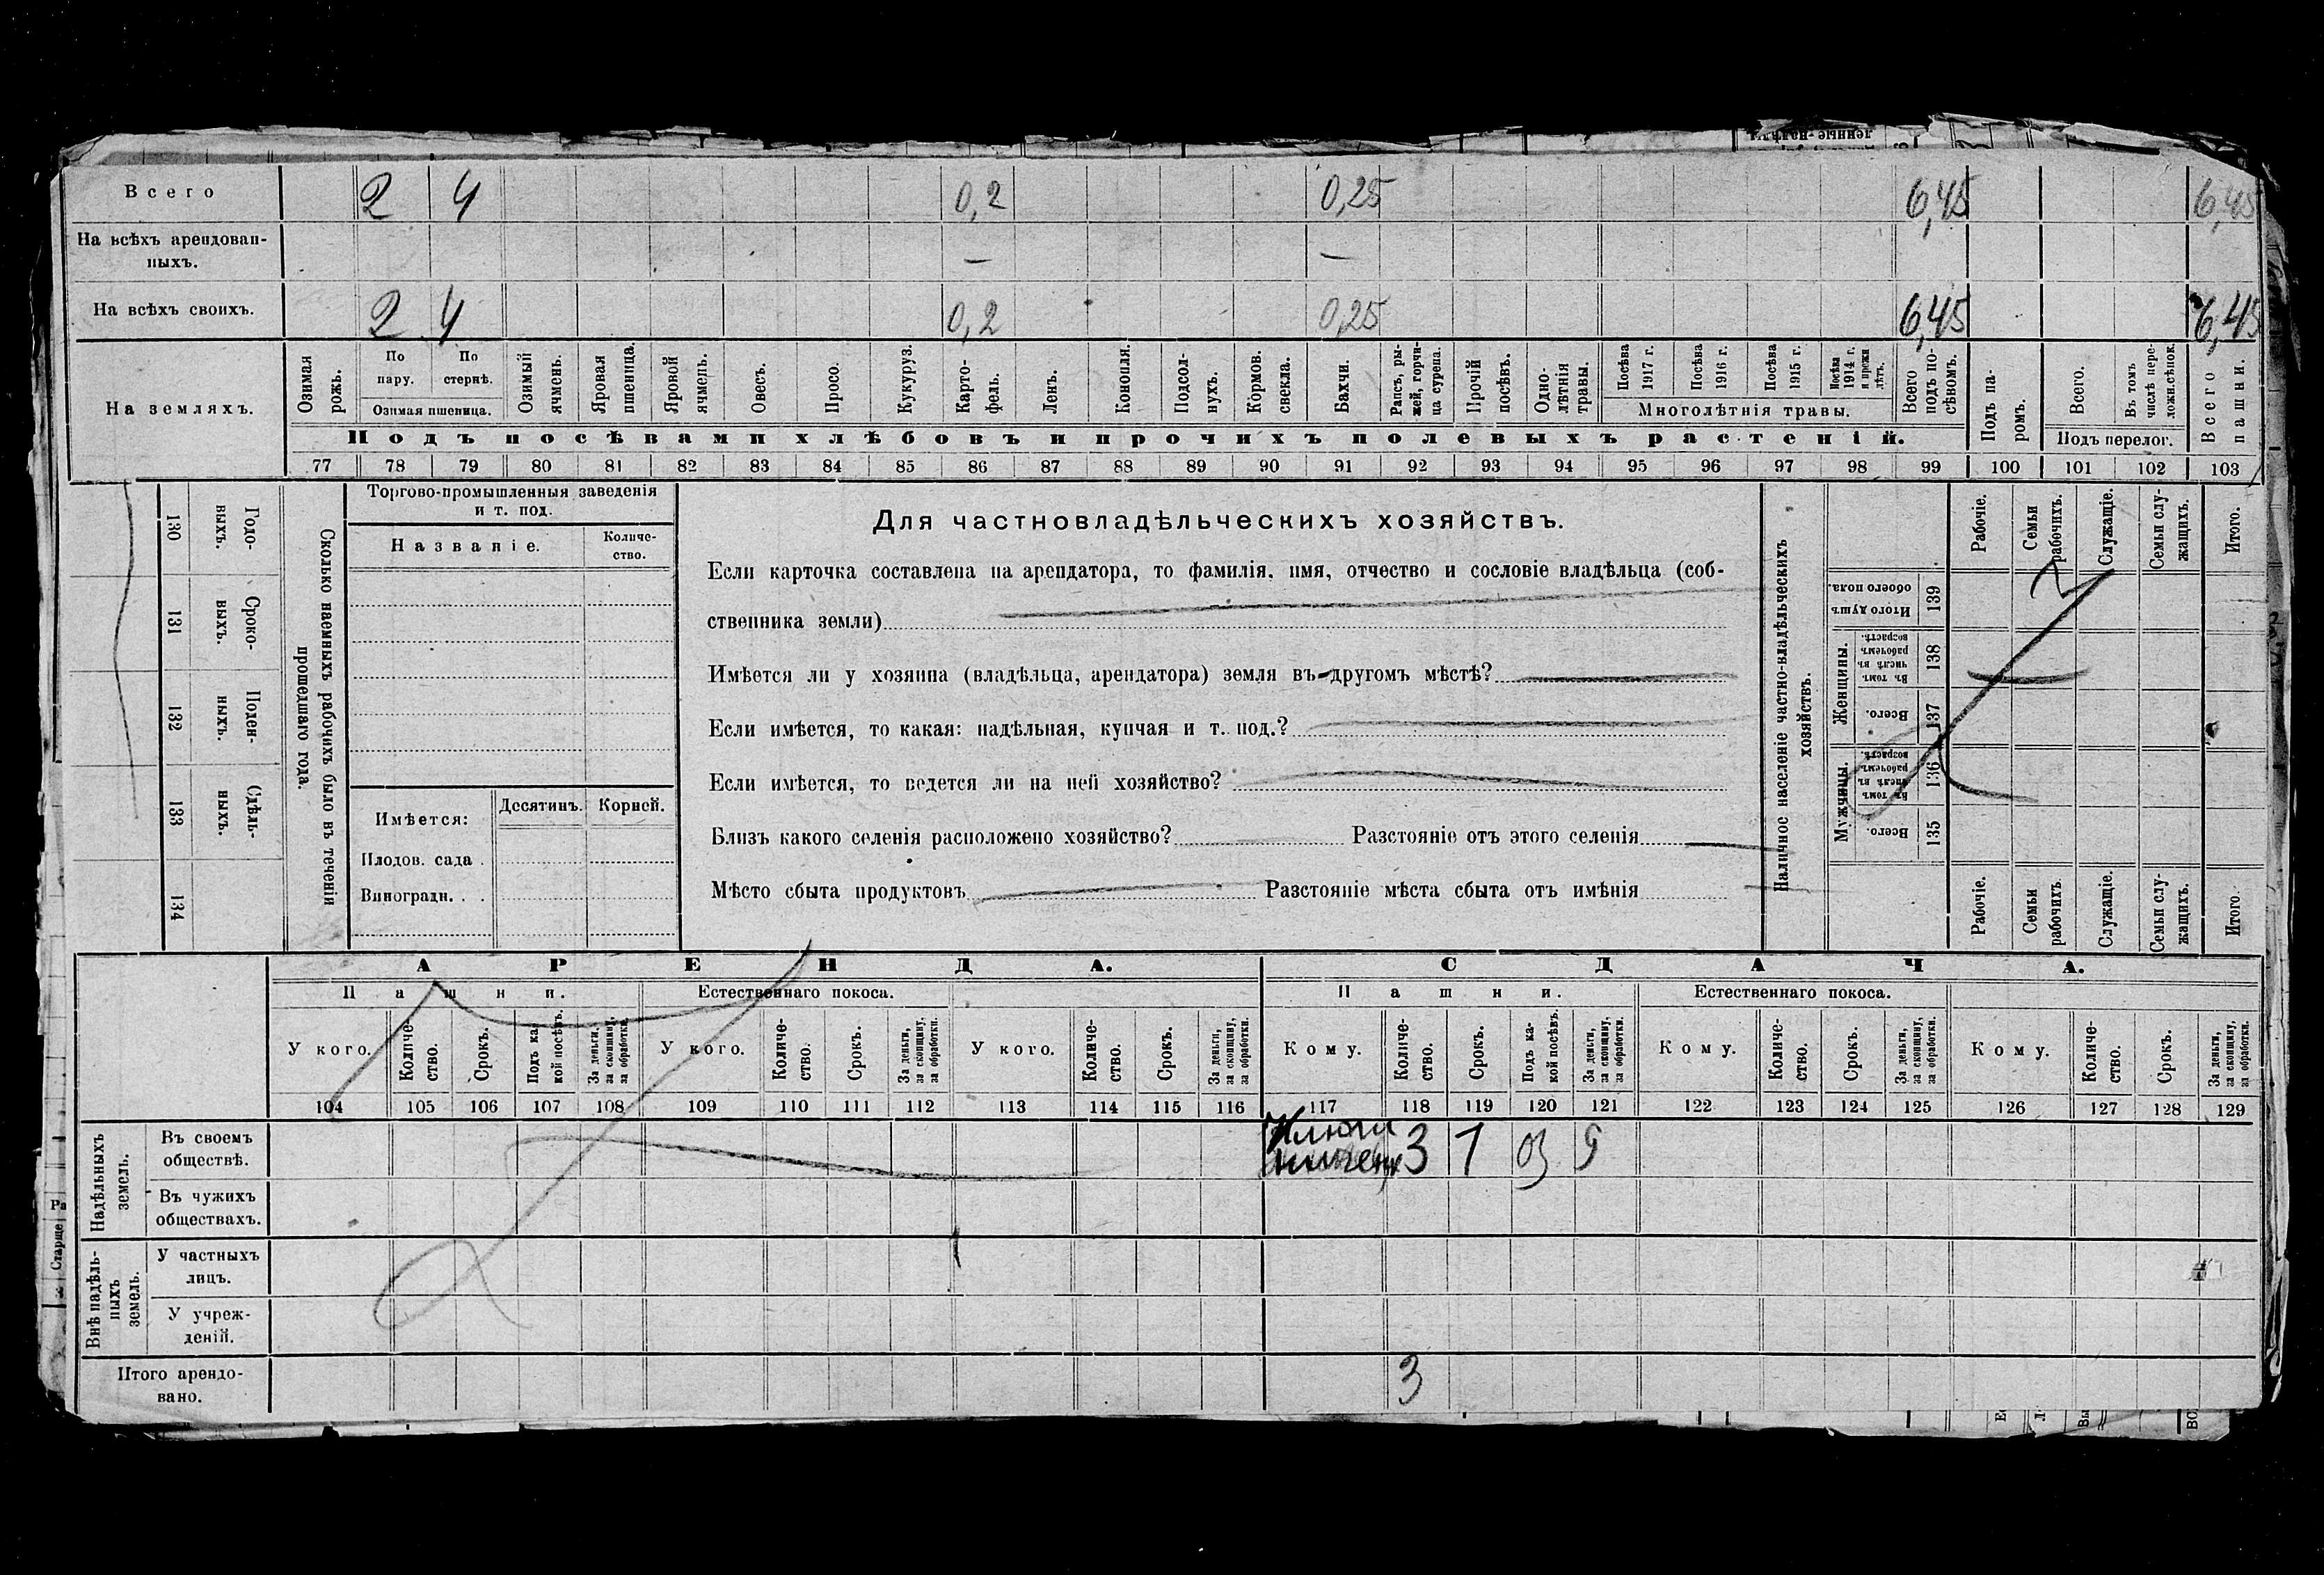 Всего 2 4 0,2 0,25 6,45 6,45
На всѣхъ арендован-
ныхъ. — —
На всѣхъ своихъ. 2 4 0,2 0,25 6,45 6,45
На земляхъ.
Озимая рожь.
По пару.
По стернѣ.
Озимая пшеница.
Озимый ячмень.
Яровая пшеница.
Яровой ячмень.
Овесъ.
Просо.
Кукуруз.
Карто-
фель.
Ленъ.
Конопля.
Подсол-
нухъ.
Кормов. свекла.
Бахчи.
Рапсъ, ры-
жей, горчи-
ца сурепа.
Прочій посѣвъ.
Одно-
лѣтнія травы.
Посѣва 1917 г.
Посѣва 1916 г.
Посѣва 1915 г.
Посѣва 1914 г. и прежн лѣтъ.
Многолѣтнія травы.
Всего подъ по-
сѣвомъ.
Подъ па-
ромъ.
Всего.
Въ томъ числѣ пере-
ложн.сѣнок.
Подъ перелог.
Всего пашни.
Подъ посѣвами хлѣбовъ и прочихъ полевыхъ растеній.
77 78 79 80 81 82 83 84 85 86 87 88 89 90 91 92 93 94 95 96 97 98 99 100 101 102 103
Годо-
выхъ.
130
Сроко-
выхъ.
131
Поден-
ныхъ.
132
Сдѣль-
ныхъ.
133
134
Сколько наемныхъ рабочихъ было въ теченіи
прошедшаго года.
Торгово-промышленныя заведенія
и т. под.
Названіе.
Количе-
ство.
Имѣется:
Десятинъ.
Корней.
Плодов. сада .
Виноградн. . .
Для частновладѣльческихъ хозяйствъ.
Если карточка составлена на арендатора, то фамилія, имя, отчество и сословіе владѣльца (соб-
ственника земли)
Имѣется ли у хозяина (владѣльца, арендатора) земля въ другомъ мѣстѣ?
Если имѣется, то какая: надѣльная, купчая и т. под.?
Если имѣется, то ведется ли на ней хозяйство?
Близъ какого селенія расположено хозяйство? Разстояніе отъ этого селенія
Мѣсто сбыта продуктовъ Разстояніе мѣста сбыта отъ имѣнія
Наличное населеніе частно-владѣльческихъ
хозяйствъ.
Рабочіе.
Семьи рабочихъ.
Служащіе.
Семьи слу-
жащихъ.
Итого.
Итого душъ обоего пола.
139
Женщины.
Въ томъ числѣ въ рабочемъ возрастѣ.
138
Всего.
137
Мужчины.
Въ томъ числѣ въ рабочемъ возрастѣ.
136
Всего.
135
Рабочіе.
Семьи рабочихъ.
Служащіе.
Семьи слу-
жащихъ.
Итого.
АРЕНДА. СДАЧА.
Пашни. Естественнаго покоса. Пашни. Естественнаго покоса.
У кого.
Количе-
ство.
Срокъ.
Подъ ка-
кой посѣвъ.
За деньги, за скопщину, за обработки.
У кого.
Количе-
ство.
Срокъ.
За деньги, за скопщину, за обработки.
У кого.
Количе-
ство.
Срокъ.
За деньги, за скопщину, за обработки.
Кому.
Количе-
ство.
Срокъ.
Подъ ка-
кой посѣвъ.
За деньги, за скопщину, за обработки.
Кому.
Количе-
ство.
Срокъ.
За деньги, за скопщину, за обработки.
Кому.
Количе-
ство.
Срокъ.
За деньги, за скопщину, за обработки.
104 105 106 107 108 109 110 111 112 113 114 115 116 117 118 119 120 121 122 123 124 125 126 127 128 129
Надѣльныхъ земель.
Въ своемъ
обществѣ. 3 1 оз
Въ чужихъ
обществахъ.
Внѣ надѣль-
ныхъ земель.
У частныхъ
лицъ.
У учреж-
деній.
Итого арендо-
вано. 3